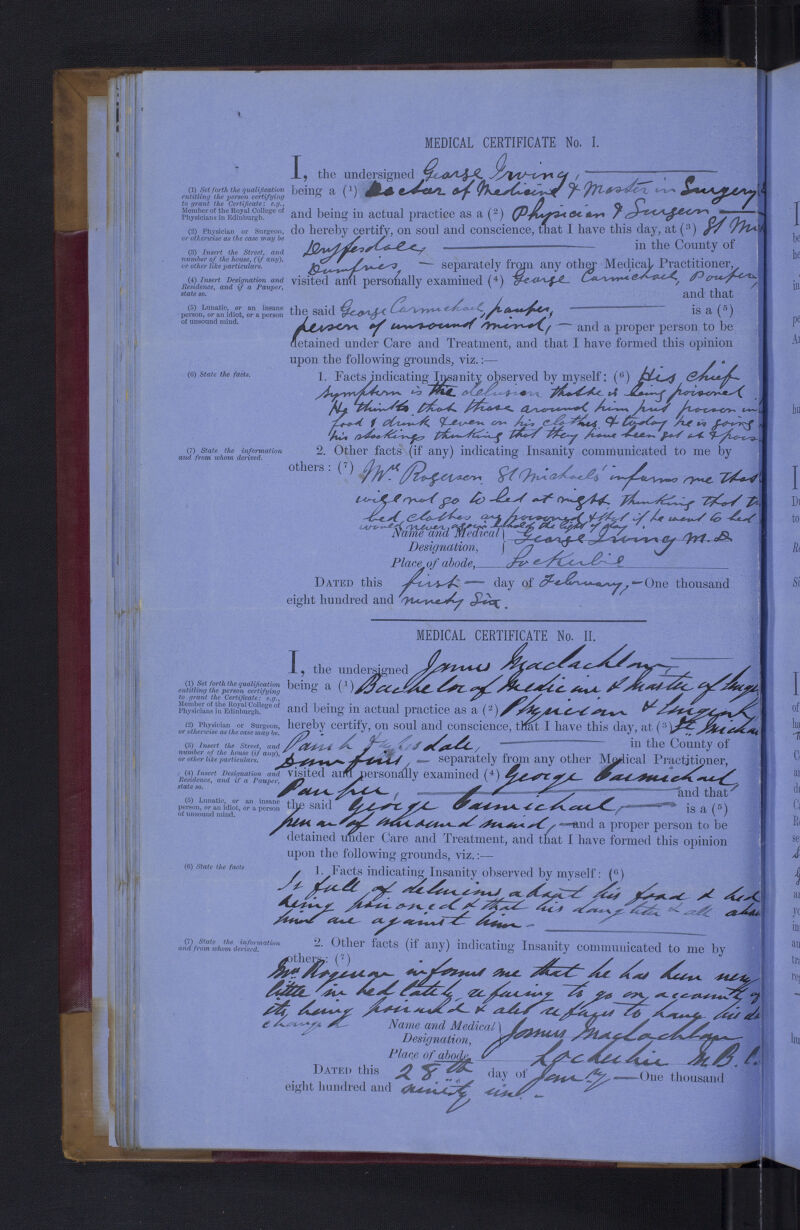 MEDICAL CERTIFICATE No. I.
I, the undersigned George Irving,
(1) Set forth the qualification
entitling the person certifying
to grant the Certificate: e.g.,
Member of the Royal College of
Physicians in Edinburgh.
being a (1) Doctor of Medicine & Master in Surgery
and being in actual practice as a (2) Physician & Surgeon
(2) Physician or Surgeon,
or otherwise as the case may be
do hereby certify, on soul and conscience, that I have this day, at (3) St
Dryfesdale, in the County of
(3) Insert the Street, and
number of the house, (if any),
or other like particulars.
Dumfries, — separately from any other Medical Practitioner,
(4) Insert Designation and
Residence, and if a Pauper,
state so.
visited and personally examined (4) George Carmichael, Pauper,
and that
(5) Lunatic, or an insane
person, or an idiot, or a person
of unsound mind.
the said George Carmichael, pauper, is a (5)
person of unsound mind, — and a proper person to be
detained under Care and Treatment, and that I have formed this opinion
upon the following grounds, viz.:—
(6) State the facts.
1. Facts indicating Insanity observed by myself: (6) His chief
symptom is the delusion that he is being poisoned
He thinks that those around him put poison in
food & drink & even on his clothes, & today he is going
his stockings thinking that they have been got at &
(7) State the information
and from whom derived.
2. Other facts (if any) indicating Insanity communicated to me by
others: (7) Mrs Rogerson St Michaels' informs me that
will not go to bed at night thinking that
bed clothes are poisoned & that if he went to bed
would never again behold the light of day
Name and Medical
Designation,
George Irving M.D
Place of abode, Lockerbie
DATED this first — day of February, — One thousand
eight hundred and ninety Six.
MEDICAL CERTIFICATE No. II.
I, the undersigned James Maclachlan
(1) Set forth the qualification
entitling the person certifying
to grant the Certificate: e.g.,
Member of the Royal College of
Physicians in Edinburgh.
being a (1) Bachelor of Medicine & Master of
and being in actual practice as a (2) Physician & Surgeon
(2) Physician or Surgeon,
or otherwise as the case may be.
hereby certify, on soul and conscience, that I have this day, at (3) St.
(3) Insert the Street, and
number of the house (if any),
or other like particulars.
Parish Dryfesdale, in the County of
Dumfries, — separately from any other Medical Practitioner,
(4) Insert Designation and
Residence, and if a Pauper,
state so.
visited and personally examined (4) George Carmichael,
Pauper, and that
(5) Lunatic, or an insane
person, or an idiot, or a person
of unsound mind.
the said George Carmichael, is a (5)
person of unsound mind, — and a proper person to be
detained under Care and Treatment, and that I have formed this opinion
upon the following grounds, viz.:—
(6) State the facts
1. Facts indicating Insanity observed by myself: (6)
Is full of delusions about his food & bed
being poisoned & that his daughter & all
him are against him —
(7) State the information
and from whom derived.
2. Other facts (if any) indicating Insanity communicated to me by
others: (7)
Mrs Rogerson informs me that he has been very
little in bed lately, refusing to go on account of
its being poisoned & also refuses to have his
changed
Name and Medical
Designation,
James Maclachlan
Place of abode, Lockerbie M.B.
DATED this 28th day of Jany — One thousand
eight hundred and ninety